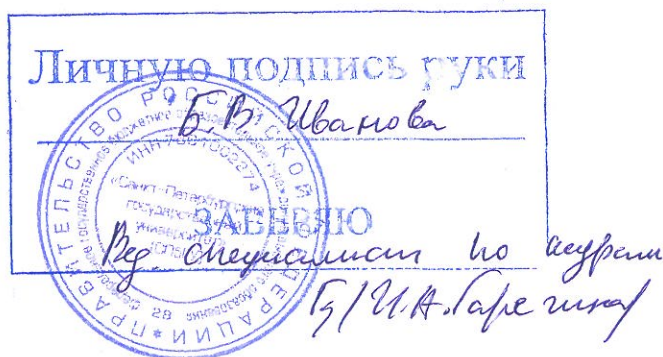 Личную подпись руки
Б.В. Иванова
ЗАВЕРЯЮ
Вед. специалист по кадрам
И.А.
ПРАВИТЕЛЬСТВО РОССИЙСКОЙ ФЕДЕРАЦИИ
«Санкт-Петербургский
государственный
университет»
28